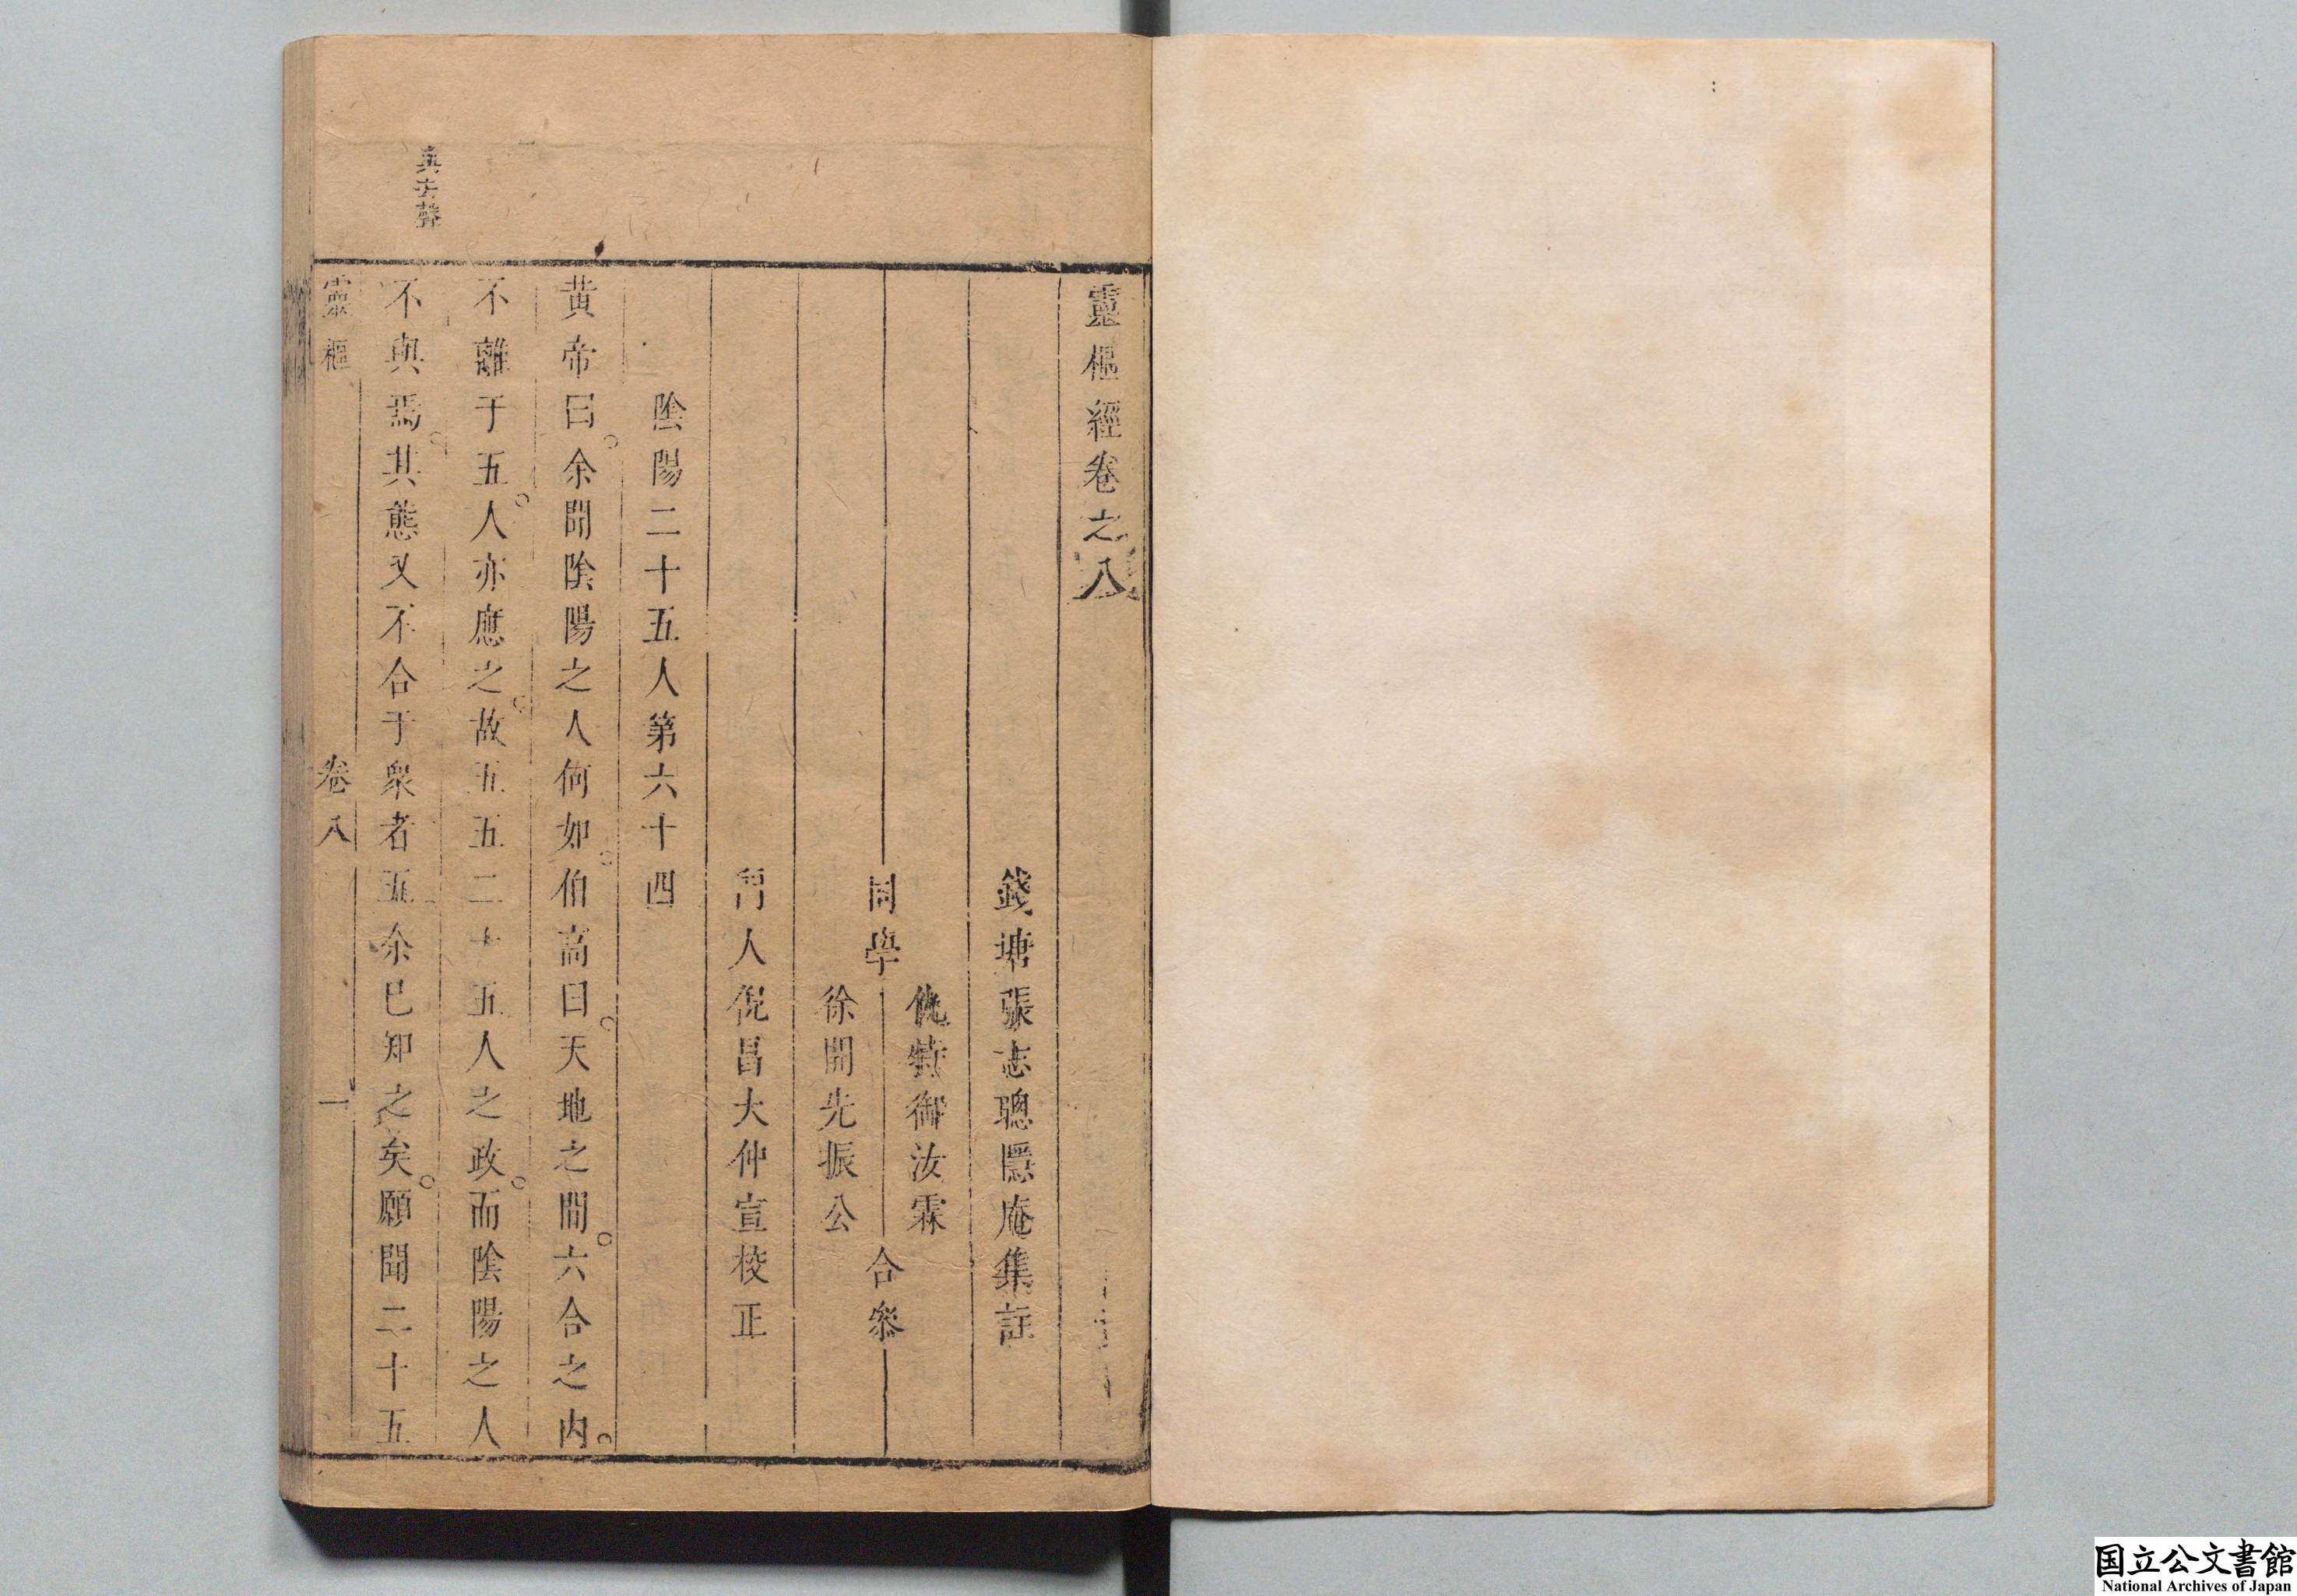 靈樞經卷之八
錢塘張志聰隱庵集註
同學
仇時御汝霖
徐開先振公
合參
門人倪昌大仲宣校正
陰陽二十五人第六十四
黃帝曰。余聞陰陽之人何如。伯高曰。天地之間。六合之內。
不離于五。人亦應之。故五五二十五人之政。而陰陽之人
不與焉。其態又不合于衆者五余已知之矣。願聞二十五
與去聲
靈樞
卷八
一
国立公文書館
National Archives of Japan